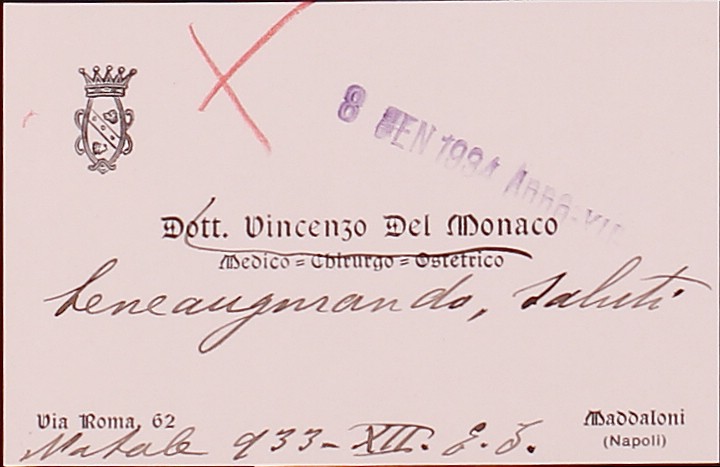 8 GEN 1934
Dott. Vincenzo Del Monaco
Medico = Chirurgo = Ostetrico
beneaugurando, saluti
Via Roma, 62
Maddaloni
(Napoli)
Natale 933 - XII. E. F.